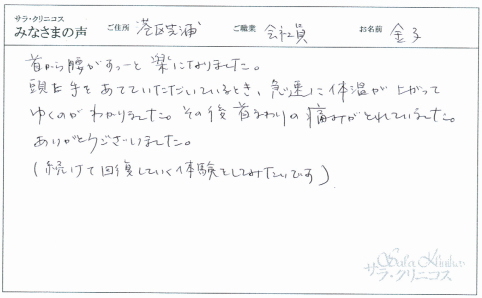 サラ・クリニコス
みなさまの声 ご住所 港区芝浦 ご職業 会社員 お名前 金子
首から腰がすっーと楽になりました。
頭に手をあてていただいているとき、急速に体温が上がって
ゆくのがわかりました。その後首まわりの痛みがとれていました。
ありがとうございました。
(続けて回復していく体験をしてみたいです)
Sala Klinikos
サラ・クリニコス